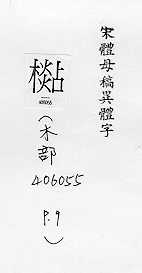 宋體母稿異體字
406055
(木部
406055
P.9)